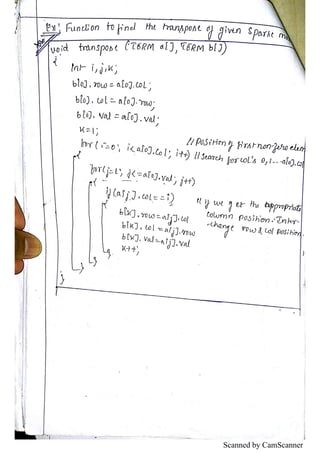 Ex: Function to find the transpose of given sparse
void transpose (TERM a[], TERM b[])
{
int i, j, k;
b[0].row = a[0].col;
b[0].col = a[0].row;
b[0].val = a[0].val;
k=1; // position of first non zero elem
for (i=0; i<a[0].col; i++) // search for col's 0, 1... a[0].col
{
for (j=1; j<=a[0].val; j++)
{
if (a[j].col == i) // if we get the appropriate
{ column position. Inter-
b[k].row = a[j].col -change row & col position.
b[k].col = a[j].row
b[k].val = a[j].val
k++;
}
}
}
}
Scanned by CamScanner